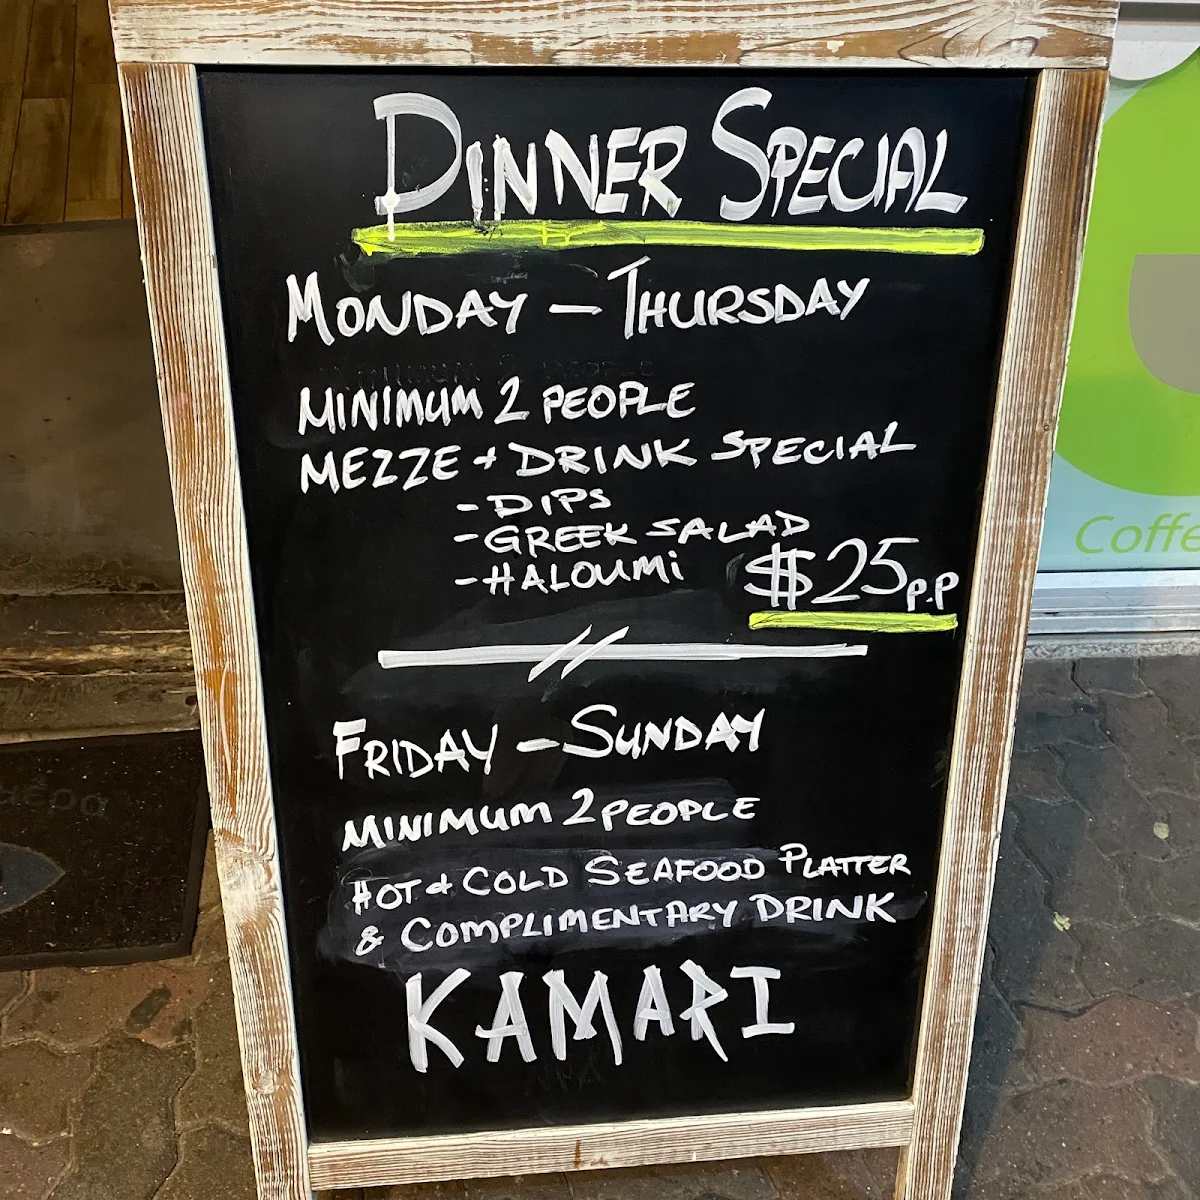 DINNER SPECIAL
MONDAY – THURSDAY
MINIMUM 2 PEOPLE
MEZZE + DRINK SPECIAL
- DIPS
- GREEK SALAD
- HALOUMi
$25 P.P
FRIDAY – SUNDAY
MINIMUM 2 PEOPLE
HOT & COLD SEAFOOD PLATTER
& COMPLIMENTARY DRINK
KAMARI